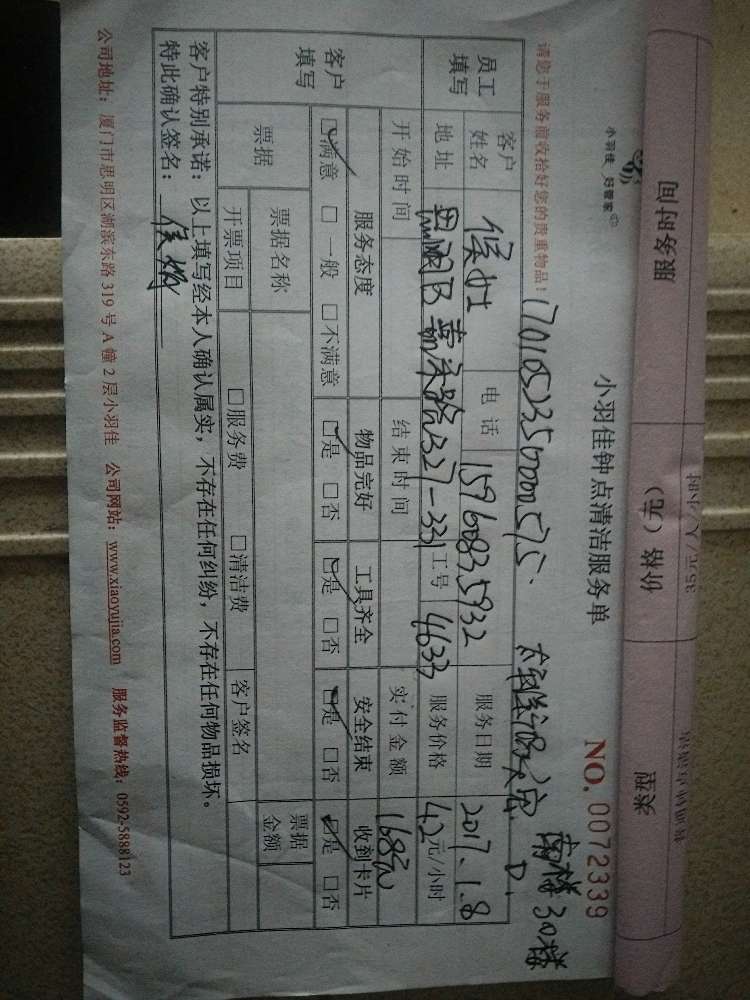 服务时间 价格（元） 类型
35元/人/小时
小羽佳 好管家
小羽佳钟点清洁服务单 NO. 0072339
请您于服务前收拾好您的贵重物品！
17010523500000575. D. 南楼30楼
员工填写 客户姓名 侯女士 电话 15960835932 服务日期 2017.1.8
地址 思明区嘉禾路327-331 工号 4633 服务价格 42元/小时
客户填写 开始时间 结束时间 实付金额 168元
服务态度 物品完好 工具齐全 安全结束 收到卡片
☑满意 □一般 □不满意 ☑是 □否 ☑是 □否 ☑是 □否 ☑是 □否
票据 票据名称 票据金额
开票项目 □服务费 □清洁费 客户签名
客户特别承诺：以上填写经本人确认属实，不存在任何纠纷，不存在任何物品损坏。
特此确认签名：侯
公司地址：厦门市思明区湖滨东路319号A幢2层小羽佳 公司网站：www.xiaoyujia.com 服务监督热线：0592-5888123